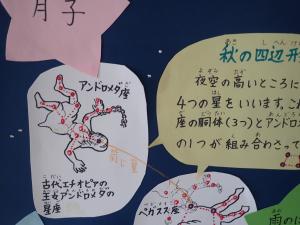 月子
アンドロメダ座
古代エチオピアの
王女アンドロメダの
星座
秋の四辺形
夜空の高いところに
4つの星をいいます。こ
座の胴体(3つ)とアンドロ
の1つが組み合わさって
同じ星
ペガスス座
雨の